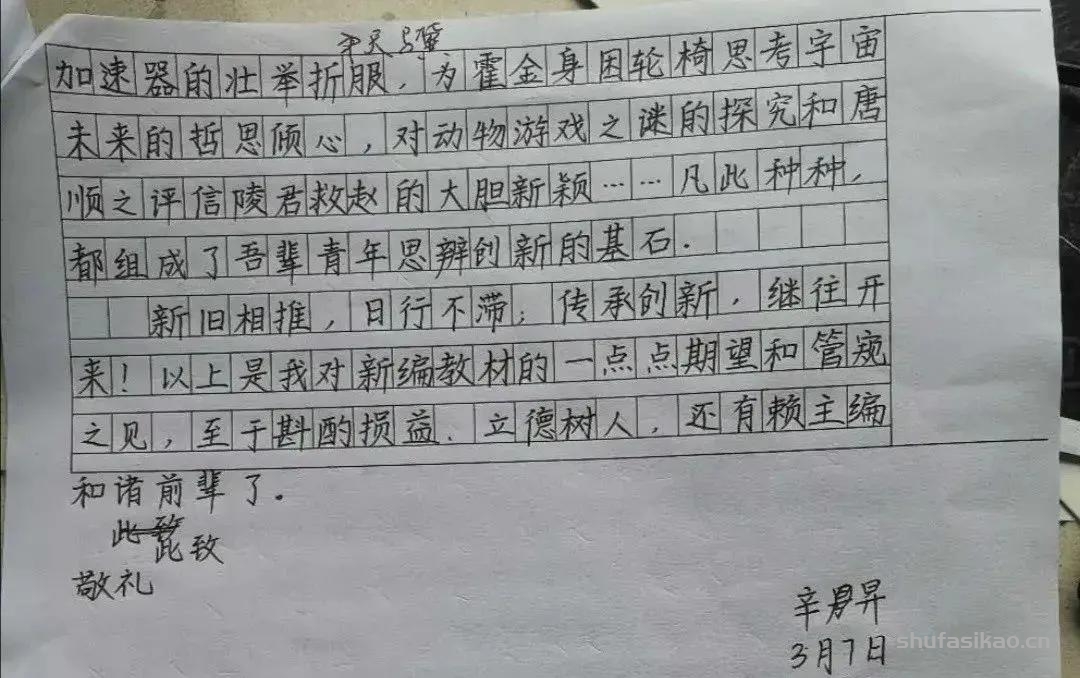 加速器的壮举折服，为霍金身困轮椅思考宇宙
未来的哲思倾心，对动物游戏之谜的探究和唐
顺之评信陵君救赵的大胆新颖……凡此种种，
都组成了吾辈青年思辨创新的基石.
新旧相推，日行不滞；传承创新，继往开
来！以上是我对新编教材的一点点期望和管窥
之见，至于斟酌损益.立德树人，还有赖主编
和诸前辈了.
此致
此致
敬礼
辛昇
3月7日
shufasikao.cn